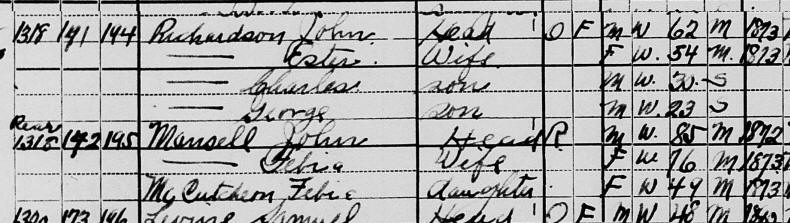 1318 171 194 Richardson John Head O F M W 62 M 1873
—— Ester Wife F W. 54 M. 1873
—— Charles son M W. 30 S
—— George son M W. 23 S
Rear
1318 172 195 Mansell John Head R M W. 85 M 1872
—— Febia Wife F W. 76 M 1873
McCutcheon Febia daughter F W 49 M 1873
173 196 Samuel Head O F M W 48 M